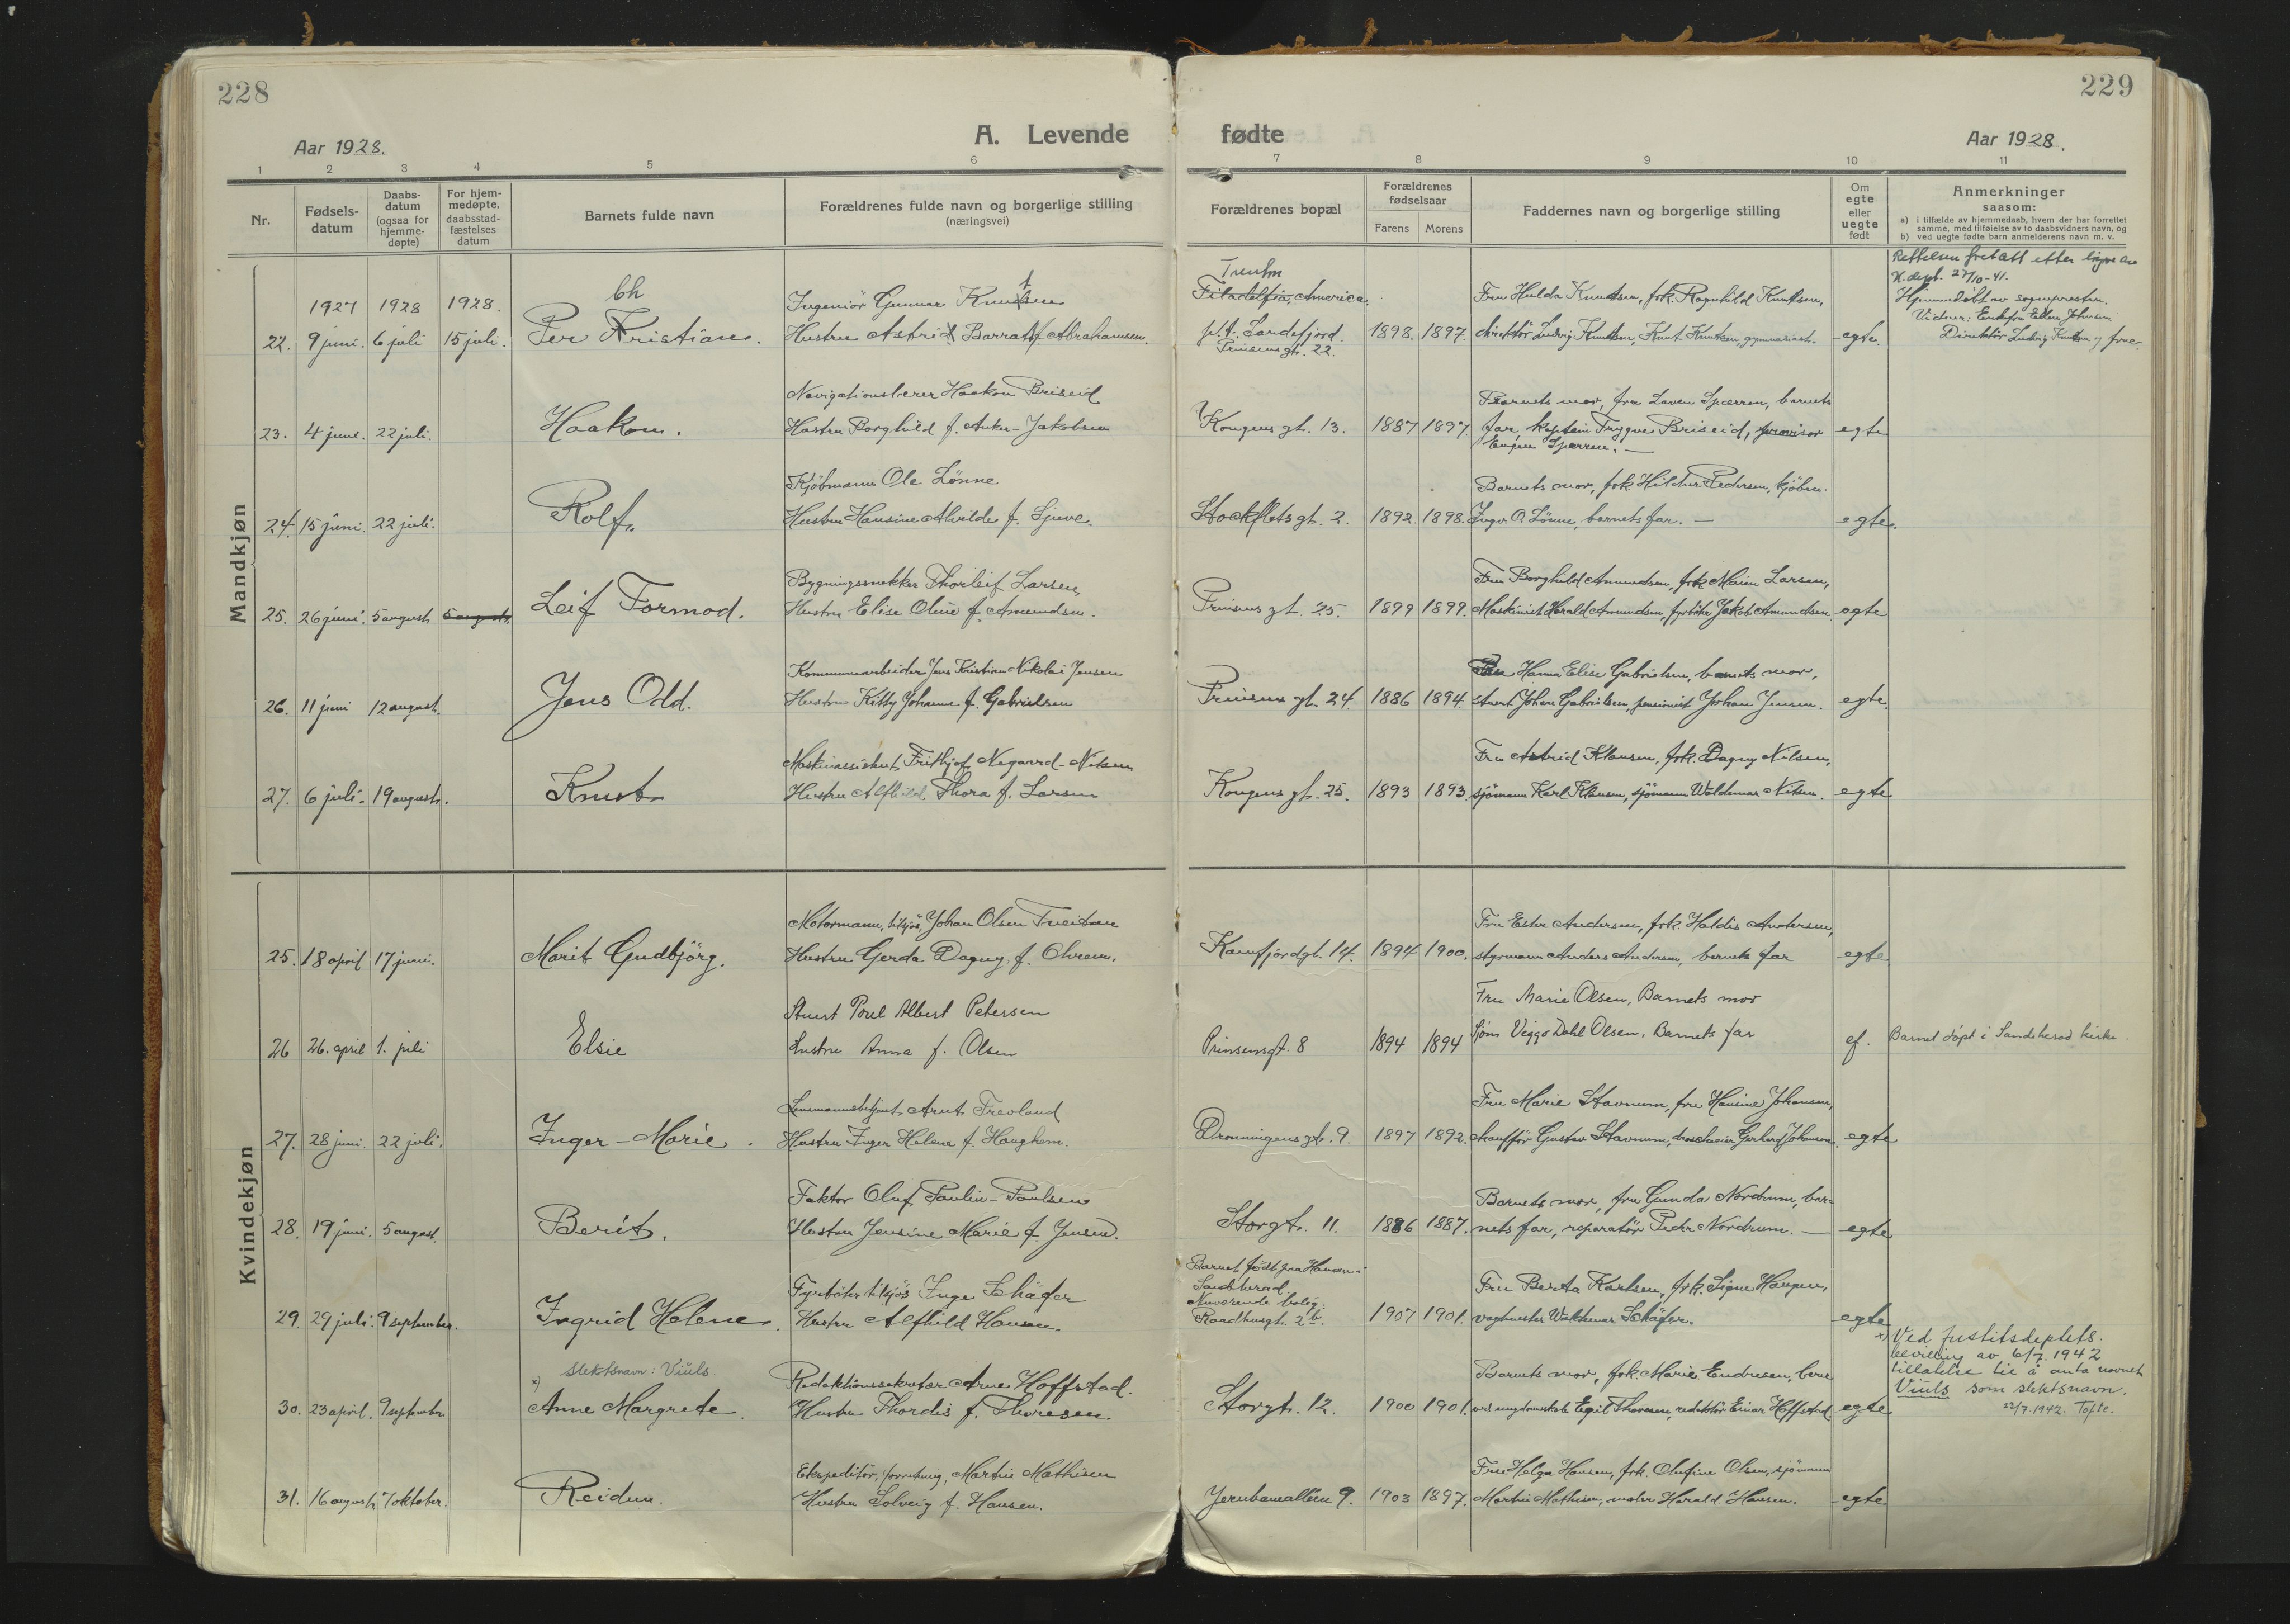 228
229
A. Levende fødte
Aar 1928.
Aar 1928.
1 2 3 4 5 6 7 8 9 10 11
Nr.
Fødsels-
datum
Daabs-
datum
(ogsaa for
hjemme-
døpte)
For hjem-
medøpte,
daabsstad-
fæstelses
datum
Barnets fulde navn
Forældrenes fulde navn og borgerlige stilling
(næringsvei)
Forældrenes bopæl
Forældrenes
fødselsaar
Farens Morens
Faddernes navn og borgerlige stilling
Om
egte
eller
uegte
født
Anmerkninger
saasom:
a) i tilfælde av hjemmedaab, hvem der har forrettet
samme, med tilføielse av to daabsvidners navn, og
b) ved uegte fødte barn anmelderens navn m. v.
Mandkjøn
1927 1928 1928.
22. 9 juni. 6 juli 15 juli.
Ch
Per Kristian.
Ingeniør Gunnar Knutsen
Hustru Astrid Barratt f. Abrahamsen.
Trenton
Filadelfia, America.
p.t. Sandefjord.
Prinsensgt. 22.
1898. 1897.
Fru Hulda Knutsen, frk. Ragnhild Knutsen,
direktør Ludvig Knutsen, Knut Knutsen, gymnasiast.
egte.
Rettelsen foretatt efter
K. dept. 27/10-41.
Hjemmedøbt av sognepresten.
Vidner: Enkefru Ellen Johnsen
Direktør Ludvig Knutsen og frue.
23. 4 juni. 22 juli.
Haakon.
Navigationslærer Haakon Briseid
Hustru Borghild f. Anker-Jakobsen
Kongens gt. 13.
1887 1897.
Barnets mor, fru Laven Sparren, barnets
far, kaptein Trygve Briseid, provisor
Sparren. —
egte
24. 15 juni. 22 juli.
Rolf.
Kjøbmann Ole Lønne
Hustru Hansine Alvilde f. Gjeve.
Stockfletsgt. 2.
1892. 1898.
Barnets mor, frk. Hildur Pedersen, kjøbm.
Ingv. O. Lønne, barnets far. —
egte.
25. 26 juni. 5 august 5 august.
Leif Tormod.
Bygningssnekker Thorleif Larsen
Hustru Elise Oline f. Amundsen.
Prinsens gt. 25.
1899 1899.
Fru Borghild Amundsen, frk. Maien Larsen,
Maskinist Harald Amundsen, fyrbøter Jakob Amundsen
egte
26. 11 juni 12 august.
Jens Odd.
Kommunearbeider Jens Kristian Nikolai Jensen
Hustru Kitty Johanne f. Gabrielsen
Prinsens gt. 24.
1886 1894.
Fru Hanna Elise Gabrielsen, barnets mor,
stuert Johan Gabrielsen, pensionist Johan Jensen.
egte.
27. 6 juli. 19 august.
Knut
Maskinassistent Frithjof Nygaard-Nilsen
Hustru Alfhild Thora f. Larsen
Kongens gt. 25.
1893 1893.
Fru Astrid Klausen, frk. Dagny Nilsen,
sjømann Karl Klausen, sjømann Waldemar Nilsen.
egte
Kvindekjøn
25. 18 april 17 juni.
Marit Gudbjörg.
Motormann, tilsjøs, Johan Olsen Tveitan
Hustru Gerda Dagny, f. Ohrem.
Kamfjordgt. 14.
1894 1900.
Fru Ester Andersen, frk. Haldis Andersen,
styrmann Anders Andersen, barnets far
egte
26 26. april 1. juli
Elsie
Stuert Poul Albert Petersen
hustru Anna f. Olsen
Prinsensgt. 8
1894 1894
Fru Marie Olsen, Barnets mor
Sjøm Viggo Dahl Olsen, Barnets far
ef.
Barnet døpt i Sandeherad kirke.
27. 28 juni. 22 juli.
Inger-Marie.
Lensmannsbetjent Arnt Trevland
Hustru Inger Helene f. Haughem.
Dronningens gt. 9.
1897 1892.
Fru Marie Stavnum, fru Hansine Johansen,
chauffør Gustav Stavnum, droscheeier Gerhard Johansen.
egte
28. 19 juni. 5 august.
Berit.
Faktor Oluf Paulin-Paulsen
Hustru Jensine Marie f. Jensen.
Storgt. 11.
1886 1887.
Barnets mor, fru Gunda Nordrum, bar-
nets far, reparatør Peder Nordrum. —
egte
29. 29 juli. 9 september.
Ingrid Helene.
Fyrbøter tilsjøs Inge Schäfer
Hustru Alfhild Hansen.
Barnet født paa Havan i
Sandeherad.
Nuværende bolig:
Raadhusgt. 2 b.
1907 1901.
Fru Berta Karlsen, frk. Signe Haugen,
vagtmester Waldemar Schäfer.
egte
30. 23 april. 9 september
slektsnavn: Viuls.
x)
Anne Margrete.
Redaktionssekretær Arne Hoffstad.
Hustru Thordis f. Thoresen.
Storgt. 12.
1900 1901.
Barnets mor, frk. Marie Endresen,
Egil Thoresen, redaktør Einar Hoffstad.
egte
x) Ved Justitsdeptets.
bevilling av 6/7. 1942
tillatelse til å anta navnet
Viuls som slektsnavn.
22/7. 1942. Tofte.
31. 16 august 7 oktober.
Reidun.
Ekspeditør, forretning, Martin Mathisen
Hustru Solveig f. Hansen.
Jernbanealléen 9.
1903 1897.
Fru Helga Hansen, frk. Olufine Olsen, sjømann
Martin Mathisen, maler Harald Hansen.
egte